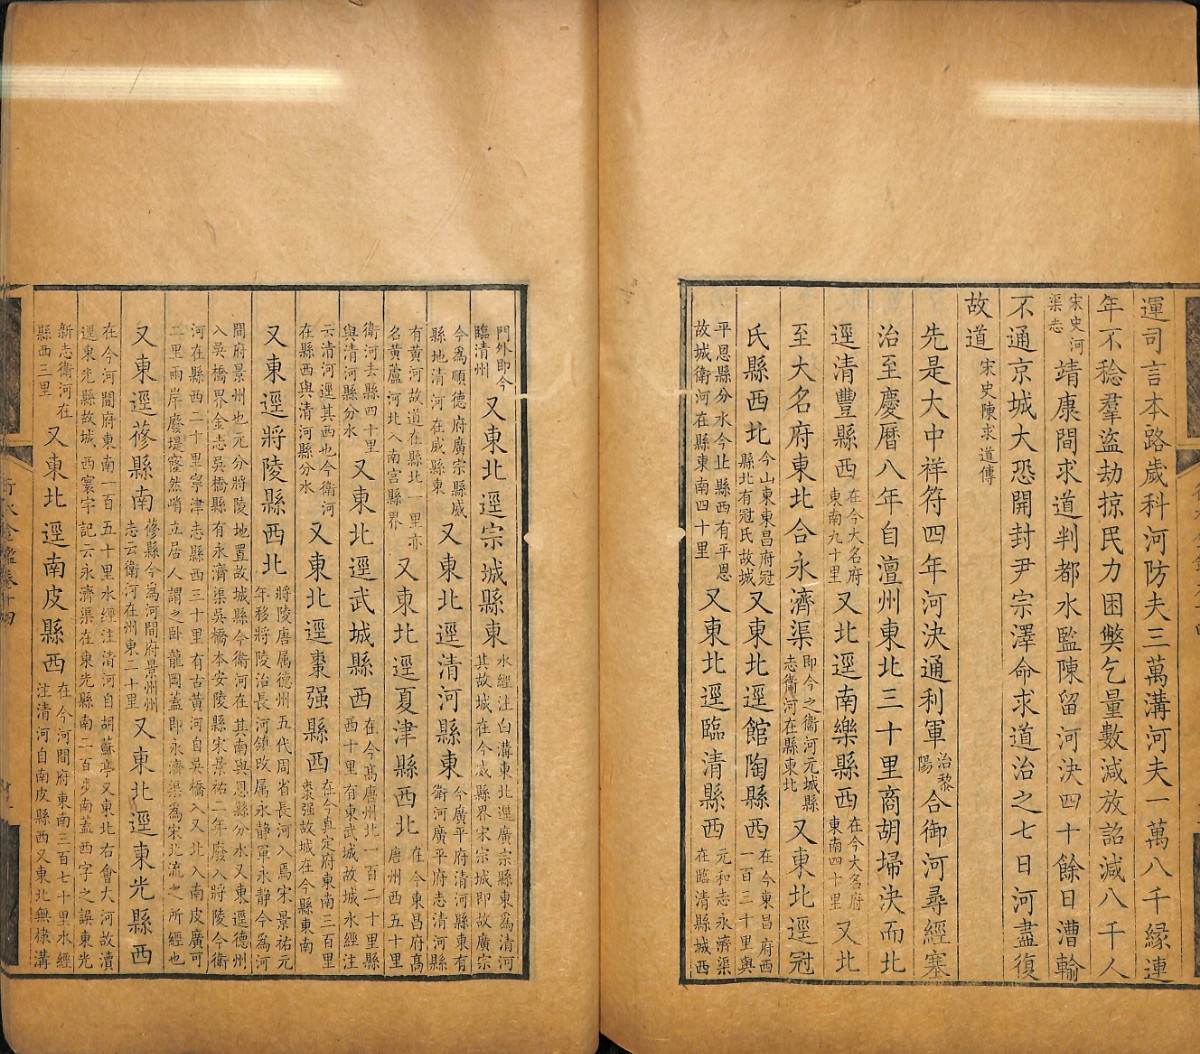 運司言本路歲科河防夫三萬溝河夫一萬八千緣連
年不稔羣盜劫掠民力困弊乞量數減放詔減八千人
宋史河渠志靖康間求道判都水監陳留河決四十餘日漕輸
不通京城大恐開封尹宗澤命求道治之七日河盡復
故道宋史陳求道傳
先是大中祥符四年河決通利軍治黎陽合御河尋經塞
治至慶曆八年自澶州東北三十里商胡埽決而北
逕清豐縣西在今大名府東南九十里又北逕南樂縣西在今大名府東南四十里又北
至大名府東北合永濟渠即今之衞河元城縣志衞河在縣東北又東北逕冠
氏縣西北今山東東昌府冠縣北有冠氏故城又東北逕館陶縣西在今東昌府西一百三十里與
平恩縣分水今止縣西有平恩故城衞河在縣東南四十里又東北逕臨清縣西元和志永濟渠在臨清縣城西
門外即今臨清州又東北逕宗城縣東水經注白溝東北逕廣宗縣東為清河其故城在今威縣界宋宗城即故廣宗
今為順德府廣宗縣威縣地清河在威縣東又東北逕清河縣東今廣平府清河縣東有衞河廣平府志清河縣
有黃河故道在縣北一里亦名黃蘆河北入南宮縣界又東北逕夏津縣西北在今東昌府高唐州西五十里
衞河去縣四十里與清河縣分水又東北逕武城縣西在今高唐州北一百二十里縣西十里有東武城故城水經注
云清河逕其西也今衞河在縣西與清河縣分水又東北逕棗强縣西在今真定府東南三百里棗强故城在今縣東南
又東逕將陵縣西北將陵唐属德州五代周省長河入焉宋景祐元年移將陵治長河鎮攺属永静軍永静今為河
間府景州也元分將陵地置故城縣今衞河在其南與恩縣分水又東逕德州入吳橋界金志吳橋縣有永濟渠吳橋本安陵縣宋景祐二年廢入將陵今衞
河在縣西二十里寧津志縣西三十里有古黃河自吳橋入又北入南皮廣可二里兩岸廢堤窿然峭立居人謂之卧龍岡蓋即永濟渠為宋北流之所經也
又東逕蓨縣南蓨縣今為河間府景州州志云衞河在州東二十里又東北逕東光縣西
在今河間府東南一百五十里水經注清河自胡蘇亭又東北右會大河故瀆逕東光縣故城西寰宇記云永濟渠在東光縣南二百步南蓋西字之誤東光
新志衞河在縣西三里又東北逕南皮縣西在今河間府東南三百七十里水經注清河自南皮縣西又東北無棣溝